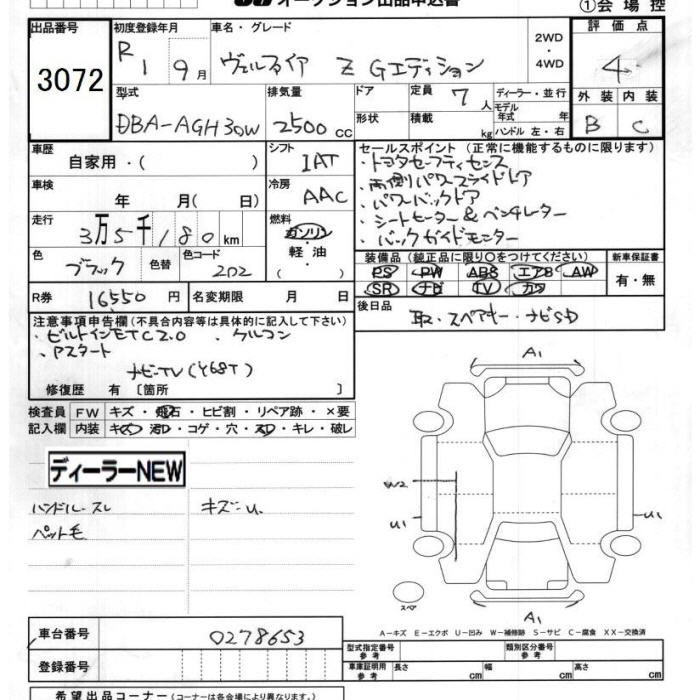 ①会場控
出品番号
3072
初度登録年月
R1 9月
車名・グレード
ヴェルファイア Z Gエディション
2WD
・4WD
評価点
4
外装 内装
B C
型式
DBA-AGH30W
排気量
2500cc
ドア
形状
定員 7人
積載 kg
ディーラー・並行
モデル年式 年
ハンドル 左・右
車歴
自家用・( )
シフト
IAT
車検
年 月( 日)
冷房
AAC
走行
3万5千180km
燃料
ガソリン
軽油
( )
色
ブラック
色替
色コード
202
R券 16550円
名変期限 月 日
セールスポイント(正常に機能するものに限ります)
・トヨタセーフティセンス
・両側パワースライドドア
・パワーバックドア
・シートヒーター&ベンチレーター
・バックガイドモニター
装備品(純正品に限り○をつけてください)
PS PW ABS エアB AW
SR ナビ TV カワ
新車保証書
有・無
後日品
取・スペアキー・ナビSD
注意事項申告欄(不具合内容等は具体的に記入して下さい)
・ビルトインETC2.0 ・クルコン
・Pスタート
ナビ・TV(Y68T)
修復歴 有〔箇所 〕
検査員 FW キズ・飛石・ヒビ割・リペア跡・×要
記入欄 内装 キズ・汚レ・コゲ・穴・スレ・キレ・破レ
ディーラーNEW
ハンドル スレ
ペット毛
キズ・U.
A1
W2
U1
U1
スペア
A1
A-キズ E-エクボ U-凹み W-補修跡 S-サビ C-腐食 XX-交換済
車台番号 0278653
登録番号
型式指定番号
参考
類別区分番号
参考
車庫証明用
参考
長さ cm 幅 cm 高さ cm
希望出品コーナー(コーナーは各会場により異なります。)